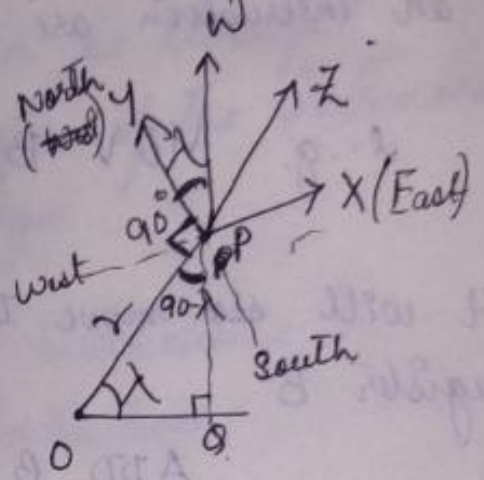 W
North Y
Z
X (East)
90°
P
West
r
90-λ
South
λ
O
Q